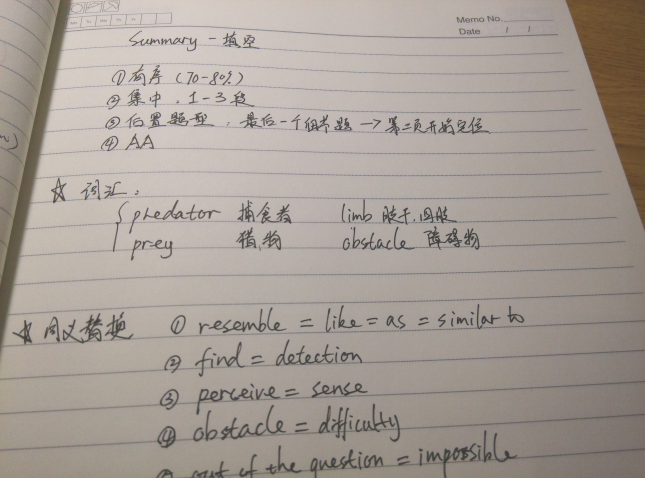 Memo No.
Date / /
Summary - 填空
① 有序 (70-80%)
② 集中, 1-3段
③ 位置题型, 最后一个细节题 → 第二页开始定位
④ AA
☆ 词汇:
predator 捕食者 limb 肢干, 四肢
prey 猎物 obstacle 障碍物
☆ 同义替换 ① resemble = like = as = similar to
② find = detection
③ perceive = sense
④ obstacle = difficulty
out of the question = impossible